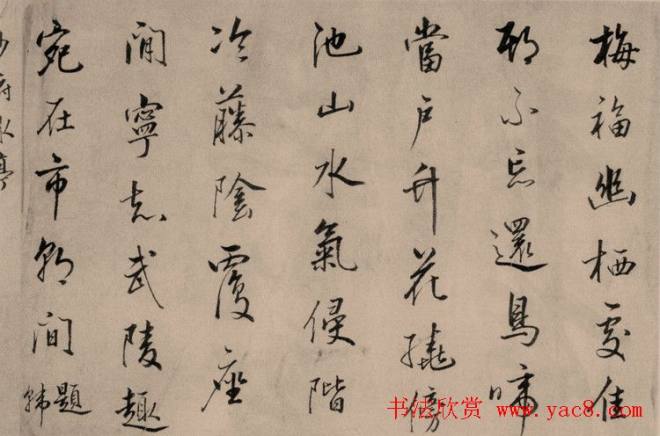 梅福幽栖處佳
期不忘還鳥啼
當戶竹花繞傍
池山水氣侵階
冷藤陰覆座
閒寧知武陵趣
宛在市朝間 題韓
少府水亭
书法欣赏 www.yac8.com